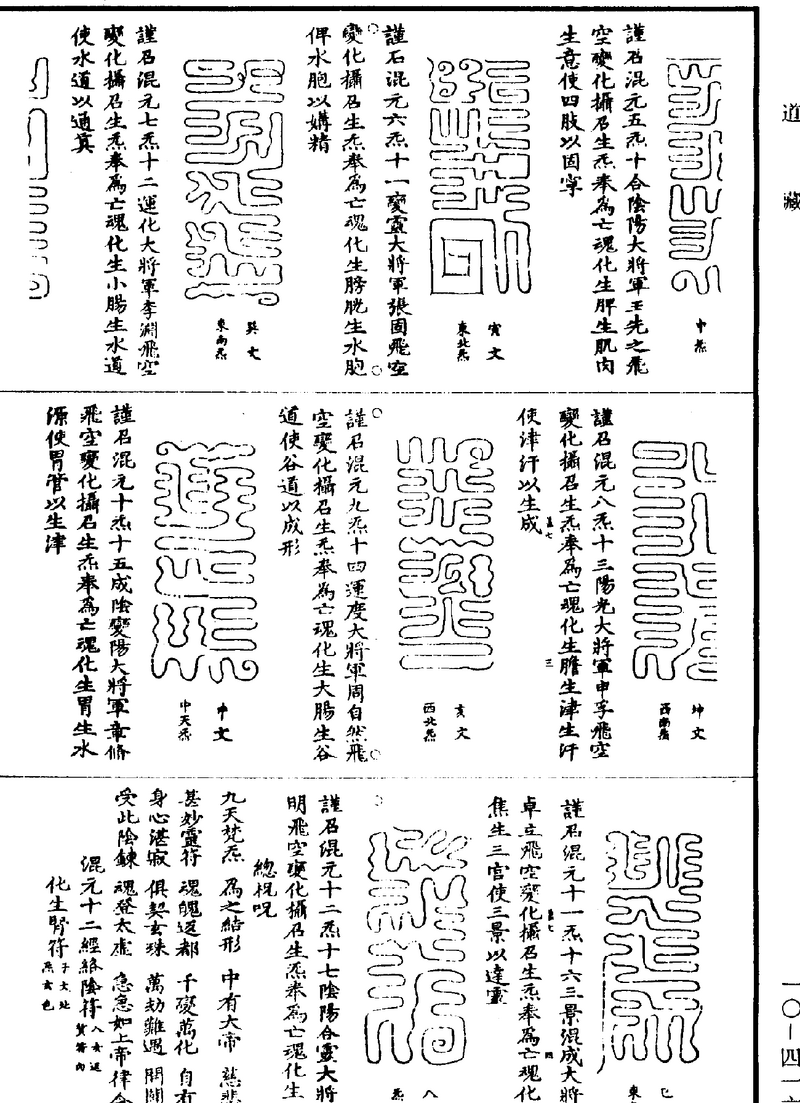 道藏
中炁
謹召混元五炁十合陰陽大將軍王先之飛
空變化攝召生炁奉為亡魂化生脾生肌肉
生意使四肢以固寧
寅文
東北炁
謹召混元六炁十一變靈大將軍張固飛空
變化攝召生炁奉為亡魂化生膀胱生水胞
俾水胞以媾精
巽文
東南炁
謹召混元七炁十二運化大將軍李淵飛空
變化攝召生炁奉為亡魂化生小腸生水道
使水道以通真
坤文
西南炁
謹召混元八炁十三陽光大將軍申孚飛空
變化攝召生炁奉為亡魂化生膽生津生汗
使津汗以生成
亥文
西北炁
謹召混元九炁十四運度大將軍周自然飛
空變化攝召生炁奉為亡魂化生大腸生谷
道使谷道以成形
中文
中天炁
謹召混元十炁十五成陰變陽大將軍章脩
飛空變化攝召生炁奉為亡魂化生胃生水
源使胃管以生津
巳
東
謹召混元十一炁十六三景混成大將
卓立飛空變化攝召生炁奉為亡魂化
焦生三宮使三景以達靈
八
炁
謹召混元十二炁十七陰陽合靈大將
明飛空變化攝召生炁奉為亡魂化生
總祝呪
九天梵炁 為之結形 中有大帝 慈悲
甚妙靈符 魂魄返都 千變萬化 自有
身心湛寂 俱契玄珠 萬劫難遇 開關
受此陰鍊 魂登太虛 急急如上帝律令
混元十二經絡陰符
化生腎符 子文北炁玄色
一〇－四一六